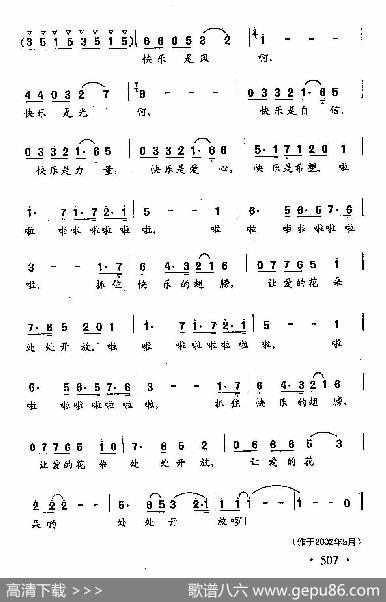 (3 5 1 5 3 5 1 5) 6 6 0 5 3 2 4 i - -
快乐 是风 啊,
4 4 0 3 2 7 6 - - 0 3 3 2 1· 6 5
快乐 是光 啊, 快乐是自信,
0 3 3 2 1· 6 5 0 3 3 2 1· 2 5· 1 7 1 2 0 1
快乐是力 量, 快乐是爱 心, 快乐是希望, 啦
1· 7 1·7 2·1 5 - - 0 6 6· 5 6·5 7·6
啦 啦啦啦啦啦 啦, 啦 啦 啦啦啦啦啦
3 - - 1·7 6 4·3 2 1 6 0 7 7 6 5 1
啦, 抓住 快乐的翅 膀, 让爱的花 朵
7·6 5 2 0 1 1· 7 1·7 2·1 5 - - 0 1
处处开放。啦 啦 啦啦啦啦啦 啦, 啦
6· 5 6·5 7·6 3 - - 1·7 6 4·3 2 1 6
啦 啦啦啦啦啦 啦, 抓住 快乐的翅 膀,
0 7 7 6 5 1 0 7· 6 5 2 0 6 6 6 5 3
让爱的花 朵 处 处开放, 让爱的花
2 2 2 - - 5· 6 5 2 0 1 1 1 - -
朵哟 处 处开 放啊!
(作于2002年5月)
· 507 ·
高清下载 >> | 歌谱八六 www.gepu86.com